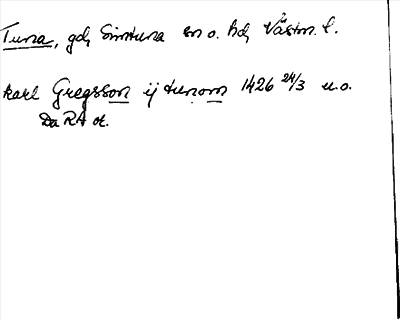 Tuna, gd, Simtuna sn o. hd, Västm. l.
Karl Gregsson ij tunom 1426 24/3 u.o.
Da RA or.